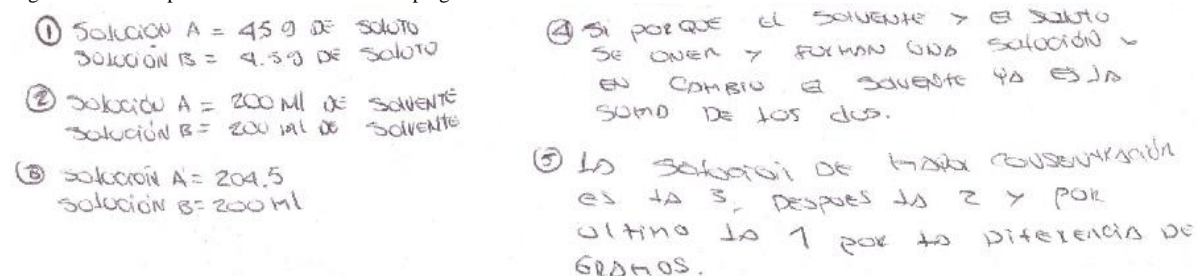 ① Solución A = 45 g de soluto
Solución B = 4.5 g de soluto
② Solución A = 200 ml de solvente
Solución B = 200 ml de solvente
③ solución A = 204.5
solución B = 200 ml
④ Si porque el solvente y el soluto
se unen y forman una solución
en cambio el solvente ya es la
suma de los dos.
⑤ La solución de
es la 3, despues la 2 y por
ultimo la 1 por la diferencia de
gramos.